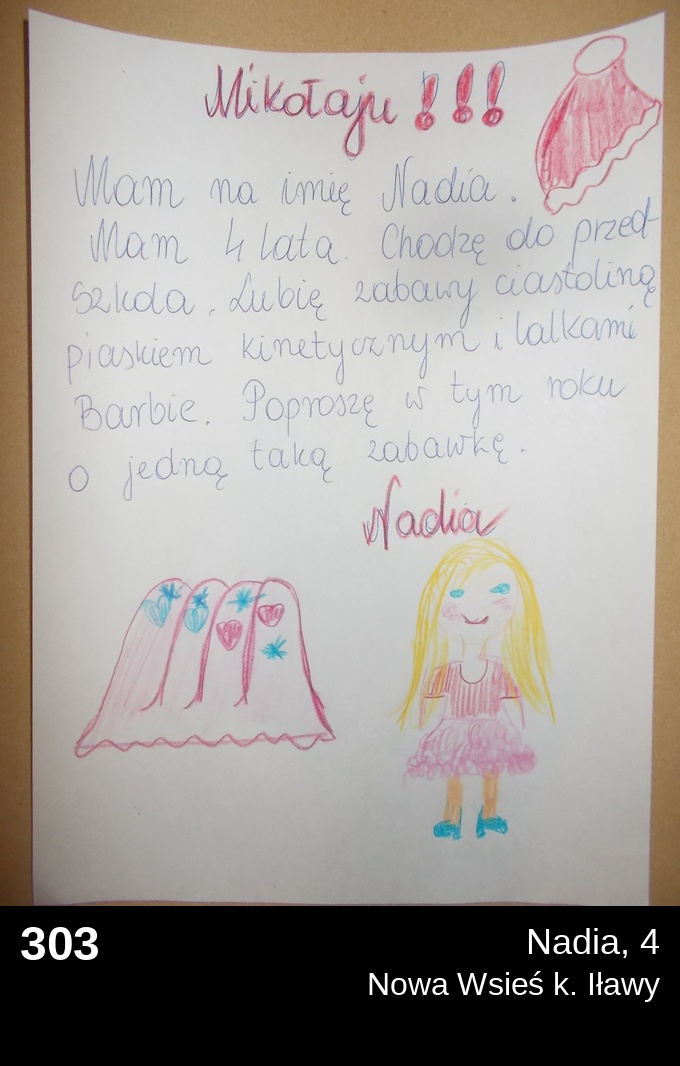 Mikołaju !!!
Mam na imię Nadia.
Mam 4 lata. Chodzę do przed-
szkola. Lubię zabawy ciastoliną
piaskiem kinetycznym i lalkami
Barbie. Poproszę w tym roku
o jedną taką zabawkę.
Nadia
303
Nadia, 4
Nowa Wsieś k. Iławy